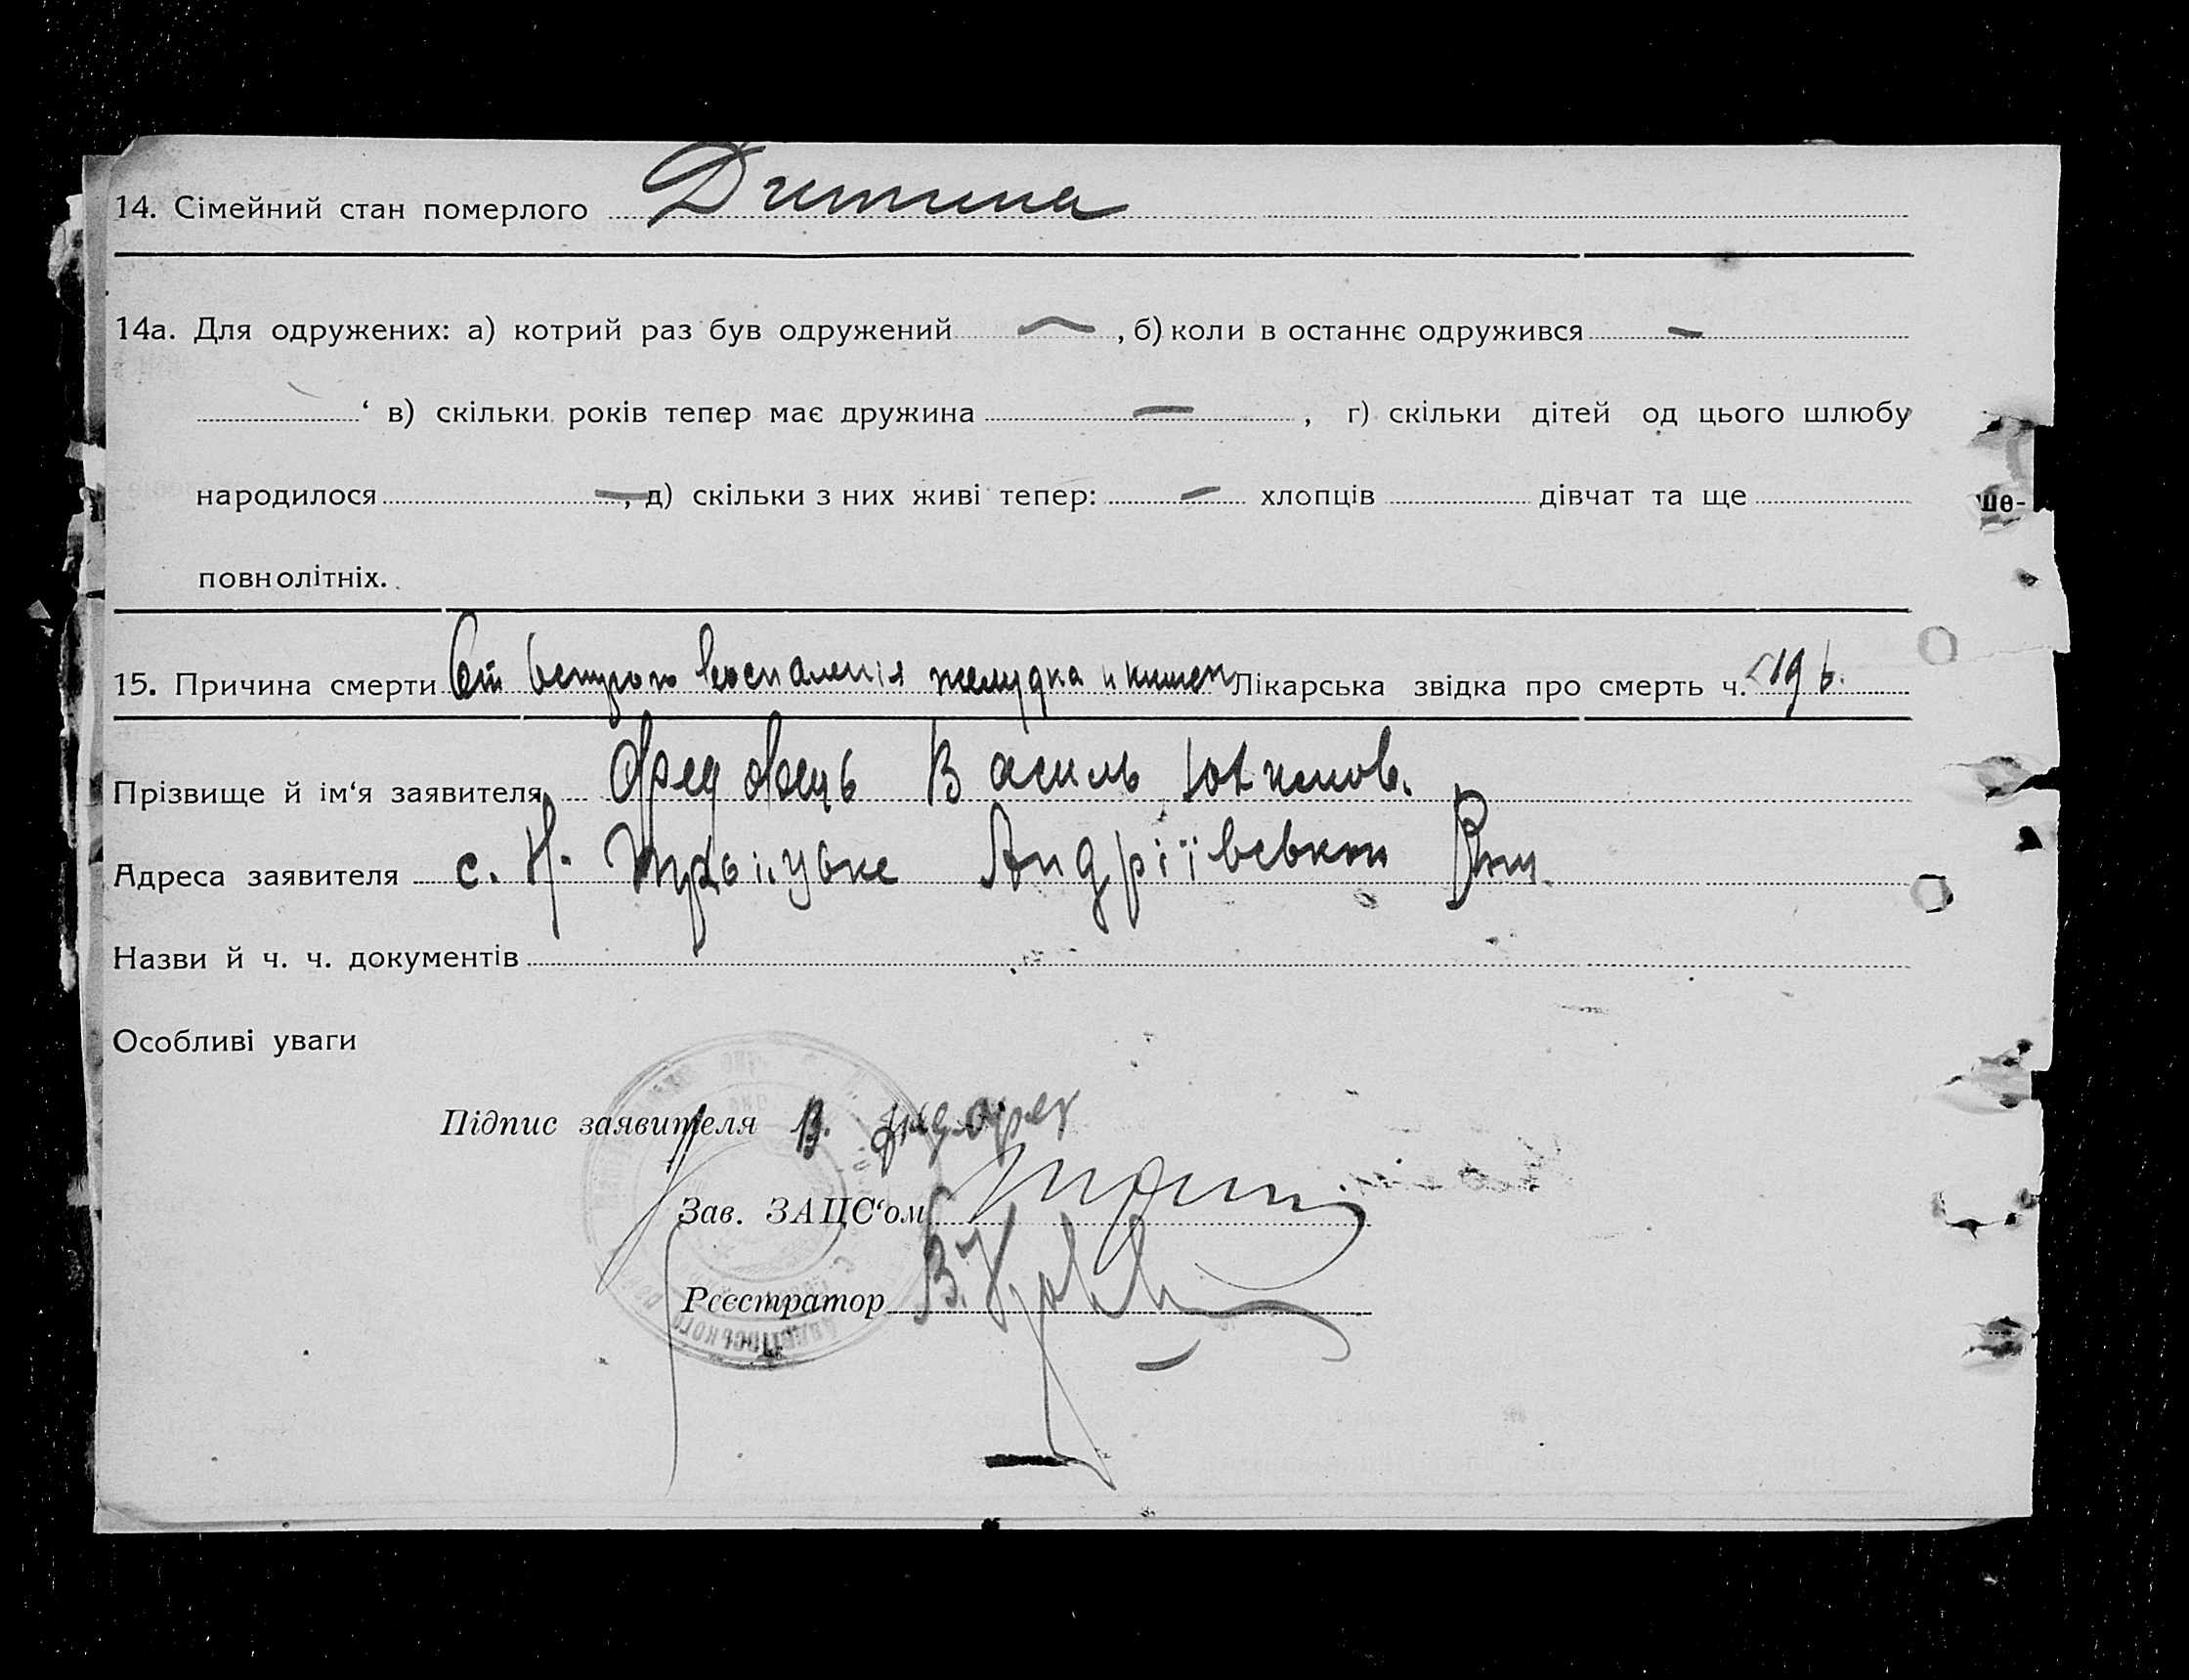 14. Сімейний стан померлого Дитина
14а. Для одружених: а) котрий раз був одружений — , б) коли в останнє одружився —
‘ в) скільки років тепер має дружина — , г) скільки дітей од цього шлюбу
народилося — , д) скільки з них живі тепер: — хлопців дівчат та ще
повнолітніх.
ше-
15. Причина смерти От острого воспаленія желудка и кишек Лікарська звідка про смерть ч. 196.
Прізвище й ім‘я заявителя Василь
Адреса заявителя с. Н. Андріївської
Назви й ч. ч. документів
Особливі уваги
Підпис заявителя В.
Зав. ЗАЦС‘ом
Реєстратор В.